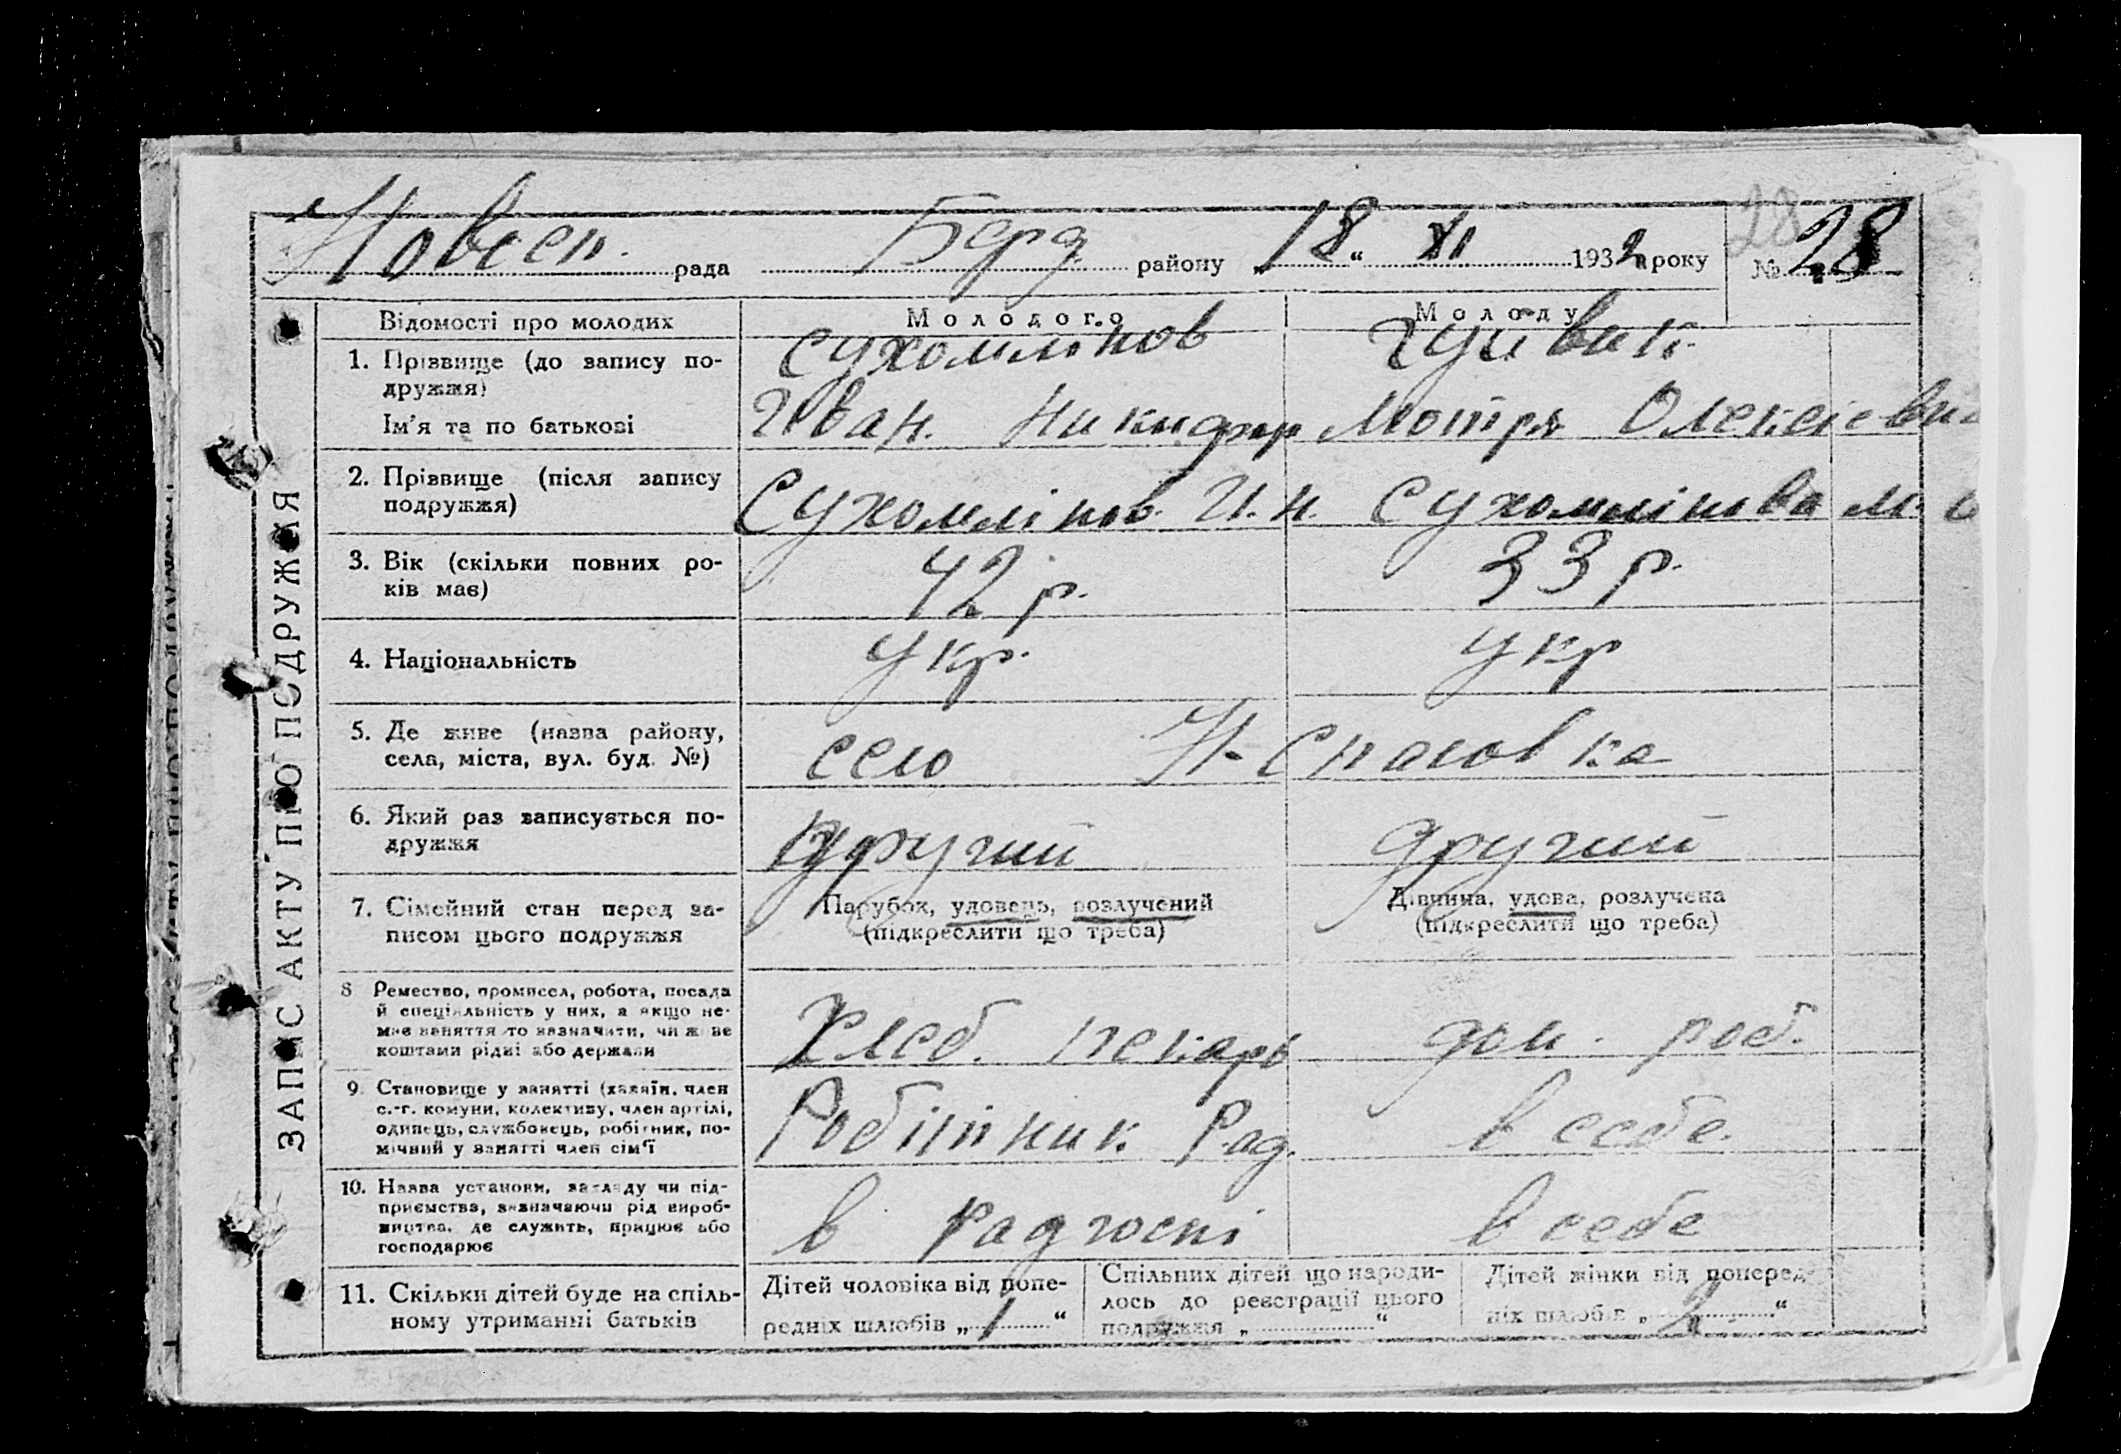 Новосп. рада Берд району „18“ XI 1932 року № 28
28
ЗАПИС АКТУ ПРО ПОДРУЖЖЯ
Відомості про молодих Молодого Молоду
1. Прізвище (до запису по-
дружжя) Сухомлінов
Ім'я та по батькові Иван. Никифор Мотря Олексіевна
2. Прізвище (після запису
подружжя) Сухомлінов. И. Н. Сухомлінова М.
3. Вік (скільки повних ро-
ків має) 42 р. 33 р.
4. Національність укр. укр
5. Де живе (назва району,
села, міста, вул. буд. №) село Н-Спасовка
6. Який раз записується по-
дружжя другий другий
7. Сімейний стан перед за-
писом цього подружжя
Парубок, удовець, розлучений
(підкреслити що треба)
Дівчина, удова, розлучена
(підкреслити що треба)
8 Ремество, промисел, робота, посада
й спеціяльність у них, а якщо не-
має заняття то зазначити, чи живе
коштами рідні або держави
Хлеб. пекарь дом. роб.
9. Становище у занятті (хазяїн, член
с.-г. комуни, колективу, член артілі,
одинець, службовець, робітник, по-
мічний у занятті член сім'ї
Робітник Рад. в себе.
10. Назва установи, закладу чи під-
приємства, зазначаючи рід вироб-
ництва, де служить, працює або
господарює
в радгоспі в себе
11. Скільки дітей буде на спіль-
ному утриманні батьків
Дітей чоловіка від попе-
редніх шлюбів „1“
Спільних дітей що народи-
лось до реєстрації цього
подружжя „ “
Дітей жінки від поперед-
ніх шлюбів „2“